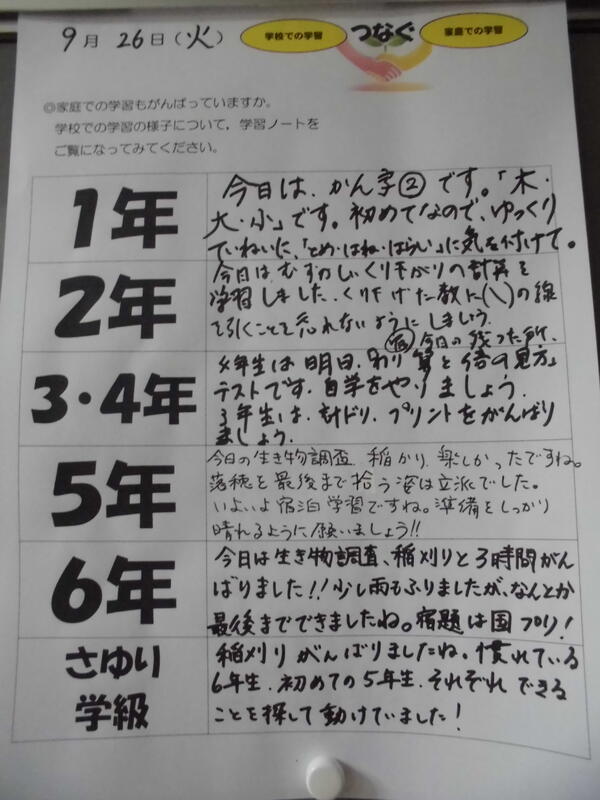 9月 26日(火)
学校での学習 つなぐ 家庭での学習
◎家庭での学習もがんばっていますか。
学校での学習の様子について,学習ノートを
ご覧になってみてください。
1年
今日は、かん字②です。「木・
大・小」です。初めてなので、ゆっくり
ていねいに、「とめ・はね・はらい」に気を付けて。
2年
今日はむずかしいくり下がりの計算を
学習しました。くり下げた数に(\)の線
を引くことを忘れないようにしましょう。
宿 今日の残った所。
3・4年
4年生は明日、わり算と倍の見方」
テストです。自学をやりましょう。
3年生は、計ドリ、プリントをがんばり
ましょう。
5年
今日の生き物調査、稲かり、楽しかったですね。
落穂を最後まで拾う姿は立派でした。
いよいよ宿泊学習ですね。準備をしっかり
晴れるように願いましょう!!
6年
今日は生き物調査、稲刈りと3時間がん
ばりました!!少し雨もふりましたが、なんとか
最後までできましたね。宿題は国プリ!
さゆり
学級
稲刈りがんばりましたね。慣れている
6年生、初めての5年生、それぞれできる
ことを探して動けていました!